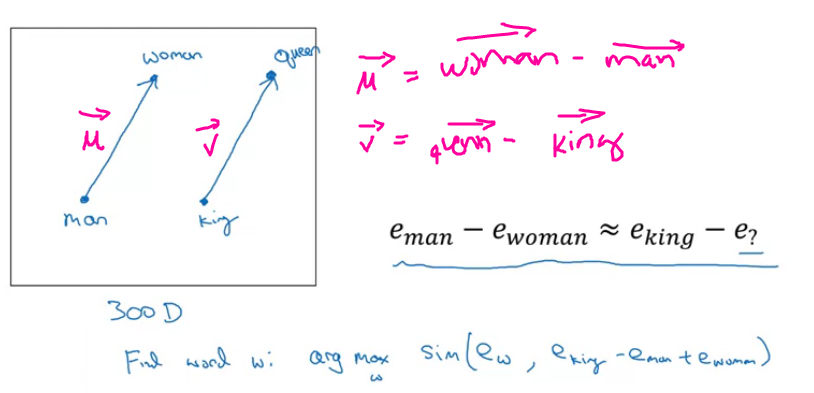 woman queen
μ⃗ = woman⃗ - man⃗
μ⃗ v⃗
v⃗ = quenn⃗ - king⃗
man king
e_man − e_woman ≈ e_king − e_?
300D
Find word w: arg max_w sim(e_w, e_king - e_man + e_woman)